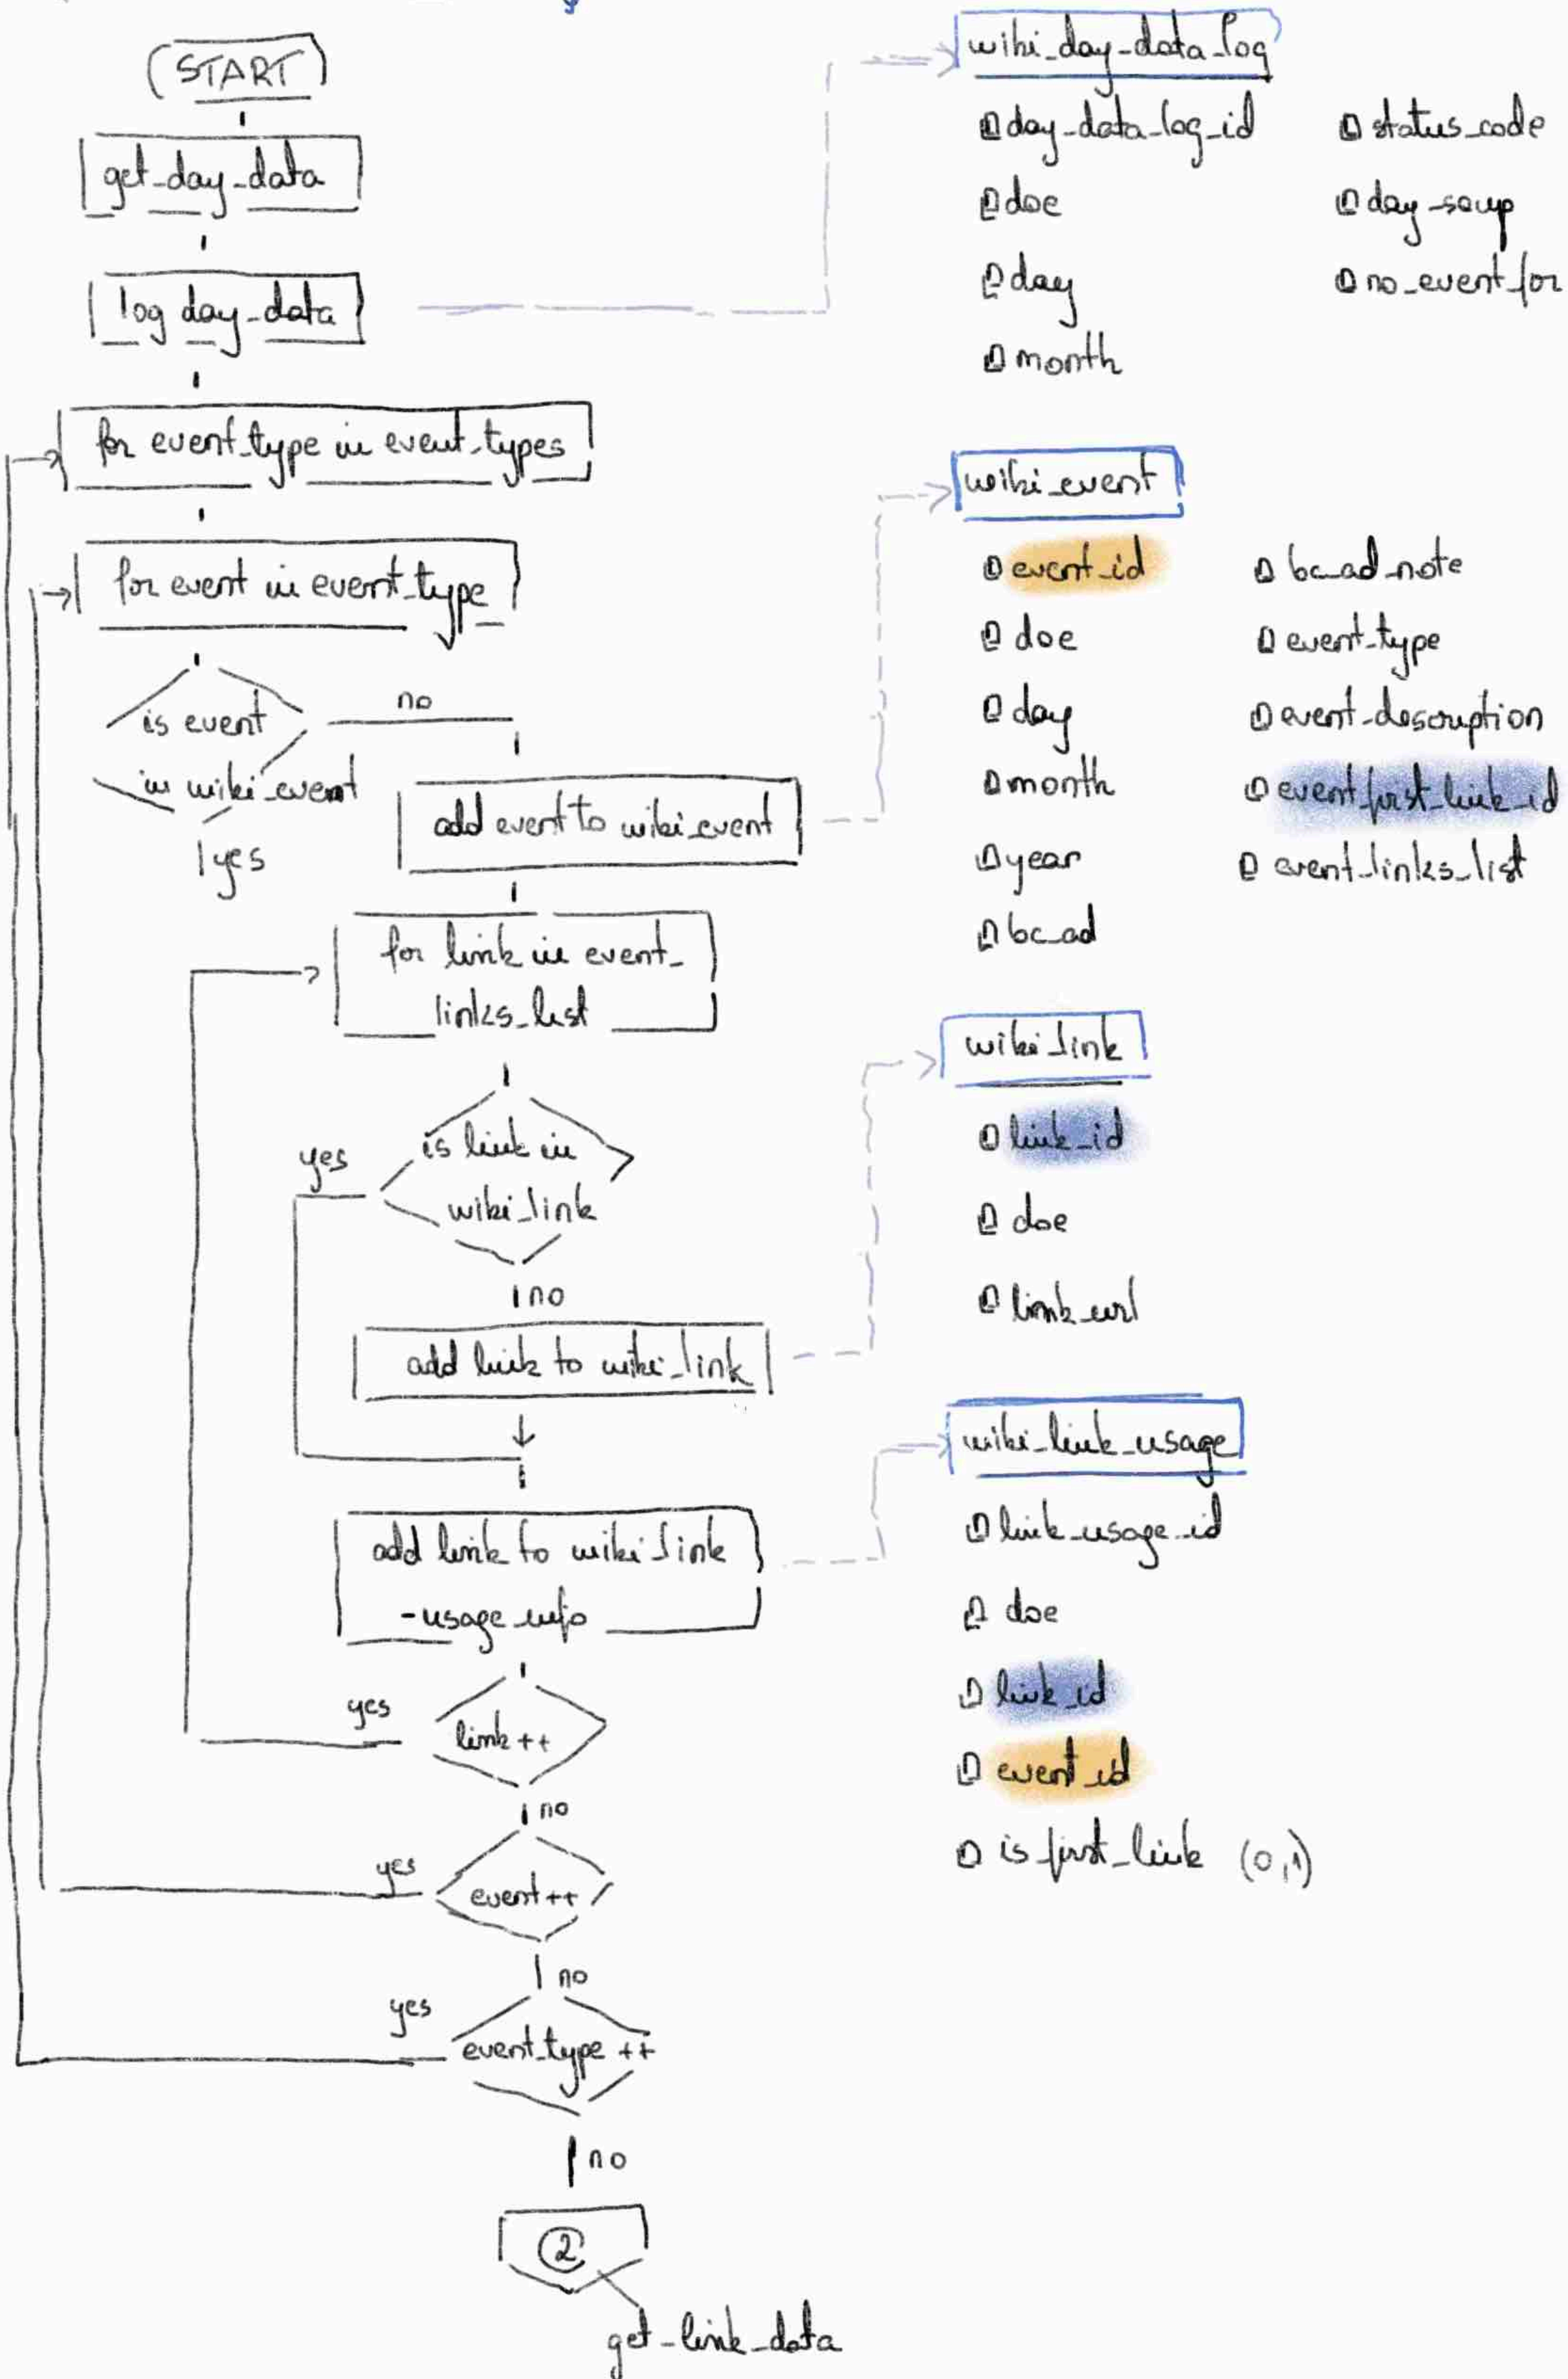 START
get_day_data
log day_data
for event_type in event_types
for event in event_type
is event
in wiki_event
no
yes
add event to wiki_event
for link in event_
links_list
is link in
wiki_link
yes
no
add link to wiki_link
add link to wiki_link
-usage_info
link++
yes
no
event++
yes
no
event_type ++
yes
no
2
get_link_data
wiki_day_data_log
day_data_log_id
doe
day
month
status_code
day_soup
no_event_for
wiki_event
event_id
doe
day
month
year
bc_ad
bc_ad_note
event_type
event_description
event_first_link_id
event_links_list
wiki_link
link_id
doe
link_url
wiki_link_usage
link_usage_id
doe
link_id
event_id
is_first_link (0,1)